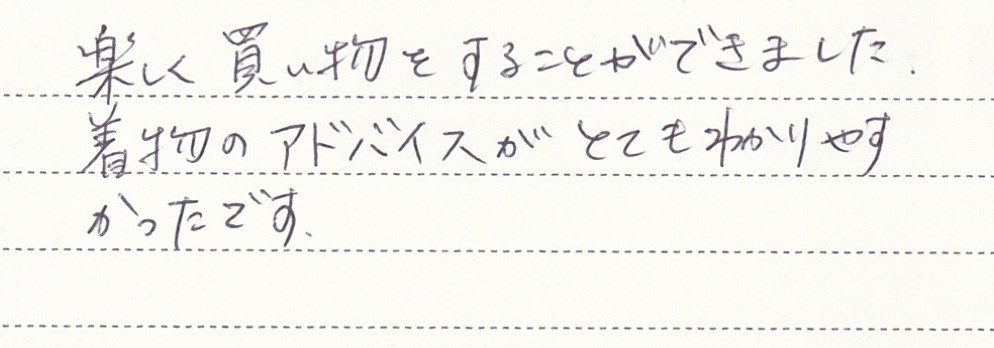 楽しく買い物をすることができました.
着物のアドバイスがとてもわかりやす
かったです.